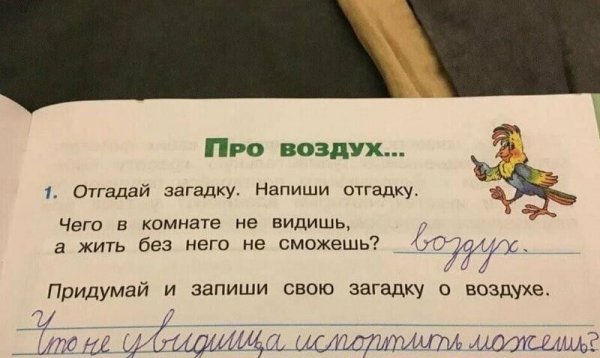 Про воздух...
1. Отгадай загадку. Напиши отгадку.
Чего в комнате не видишь,
а жить без него не сможешь? воздух.
Придумай и запиши свою загадку о воздухе.
Что не увидишь, а испортить можешь?